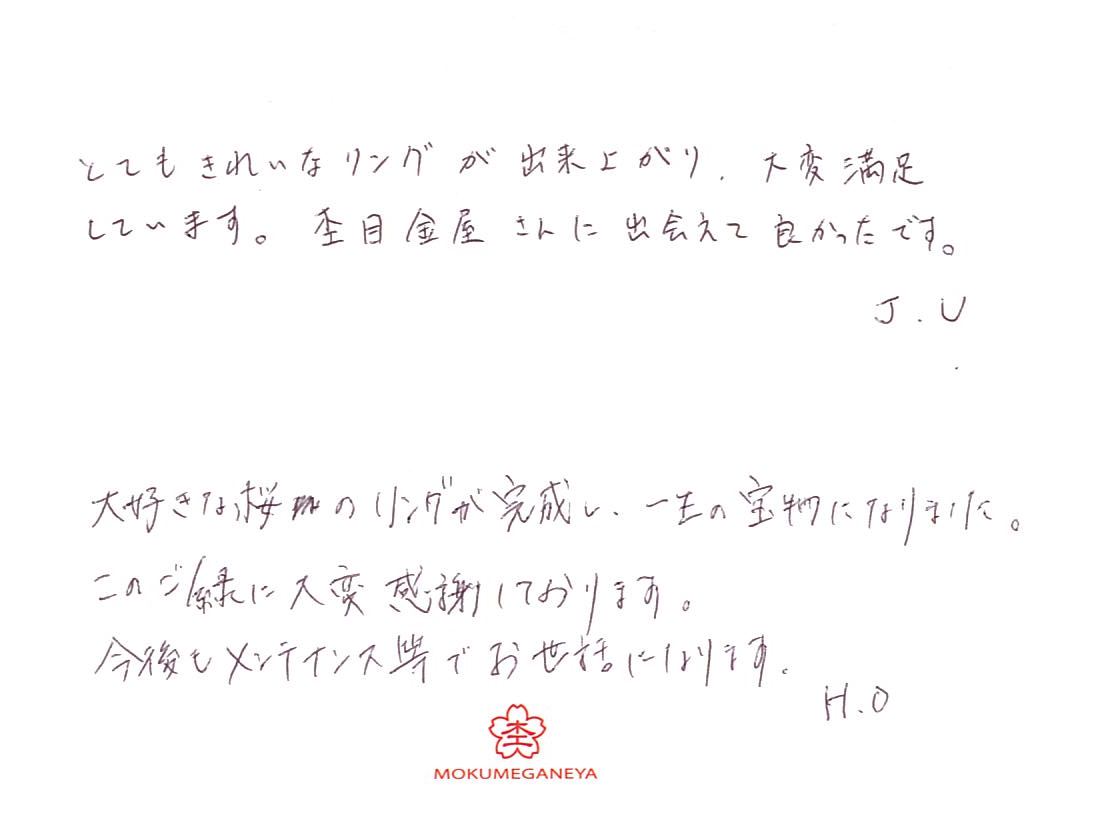 とてもきれいなリングが出来上がり、大変満足
しています。杢目金屋さんに出会えて良かったです。
J.U
大好きな桜のリングが完成し、一生の宝物になりました。
このご縁に大変感謝しております。
今後もメンテナンス等でお世話になります。
H.O
杢
MOKUMEGANEYA